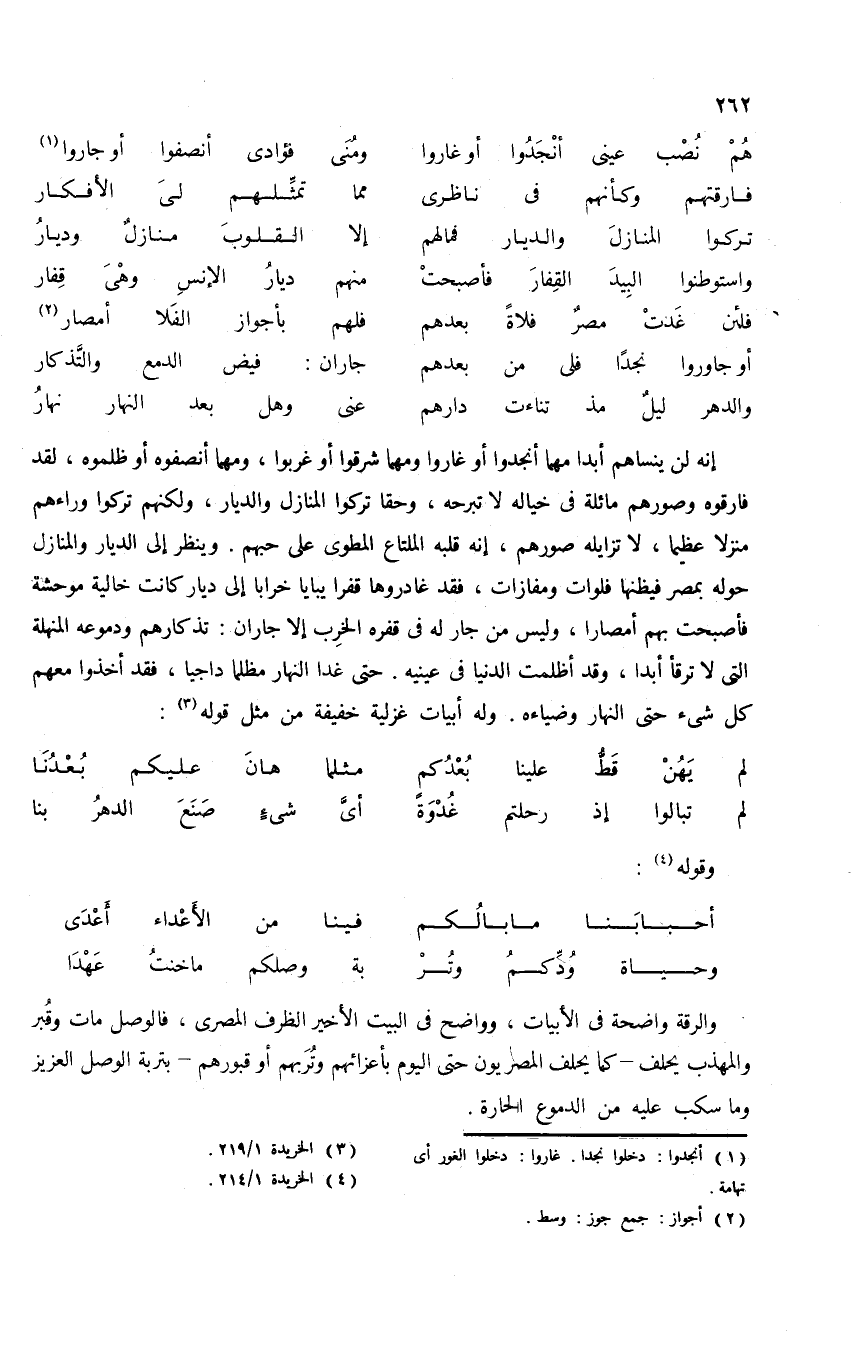 ٢٦٢
هُمْ نُصْب عينى أنْجَدُوا أو غاروا ومُنَى فؤادى أنصفوا أو جاروا(١)
فارقتهم وكأنهم فى ناظرى مما تمثِّلهم لىَ الأفكار
تركوا المنازلَ والديار فمالهم إلا القلوبَ منازلٌ وديارُ
واستوطنوا البِيدَ القِفارَ فأصبحتْ منهم ديارُ الإنسِ وهْىَ قِفار
فلئن غَدَتْ مصرٌ فلاةً بعدهم فلهم بأجواز الفَلا أمصار(٢)
أو جاوروا نجدًا فلى من بعدهم جاران : فيض الدمع والتَّذكار
والدهر ليلٌ مذ تناءت دارهم عنى وهل بعد النهار نهارُ
إنه لن ينساهم أبدا مهما أنجدوا أو غاروا ومهما شرقوا أو غربوا ، ومهما أنصفوه أو ظلموه ، لقد
فارقوه وصورهم ماثلة فى خياله لا تبرحه ، وحقا تركوا المنازل والديار ، ولكنهم تركوا وراءهم
منزلا عظيما ، لا تزايله صورهم ، إنه قلبه الملتاع المطوى على حبهم . وينظر إلى الديار والمنازل
حوله بمصر فيظنها فلوات ومفازات ، فقد غادروها قفرا يبابا خرابا إلى ديار كانت خالية موحشة
فأصبحت بهم أمصارا ، وليس من جار له فى قفره الخرِب إلا جاران : تذكارهم ودموعه المنهلة
التى لا ترقأ أبدا ، وقد أظلمت الدنيا فى عينيه . حتى غدا النهار مظلما داجيا ، فقد أخذوا معهم
كل شىء حتى النهار وضياءه . وله أبيات غزلية خفيفة من مثل قوله(٣) :
لم يَهُنْ قَطُّ علينا بُعْدُكم مثلما هانَ عليكم بُعْدُنَا
لم تبالوا إذ رحلتم غُدْوَةً أىَّ شىءٍ صَنَعَ الدهرُ بنا
وقوله(٤) :
أحبابَنا مابالُكم فينا من الأَعْداء أَعْدَى
وحياة وُدِّكمُ وتُرْ بة وصلكم ماخنتُ عَهْدَا
والرقة واضحة فى الأبيات ، وواضح فى البيت الأخير الظرف المصرى ، فالوصل مات وقُبر
والمهذب يحلف – كما يحلف المصريون حتى اليوم بأعزائهم وتُرَبهم أو قبورهم – بتربة الوصل العزيز
وما سكب عليه من الدموع الحارة .
(١) أنجدوا : دخلوا نجدا . غاروا : دخلوا الغور أى
تهامة .
(٢) أجواز : جمع جوز : وسط .
(٣) الخريدة ٢١٩/١ .
(٤) الخريدة ٢١٤/١ .